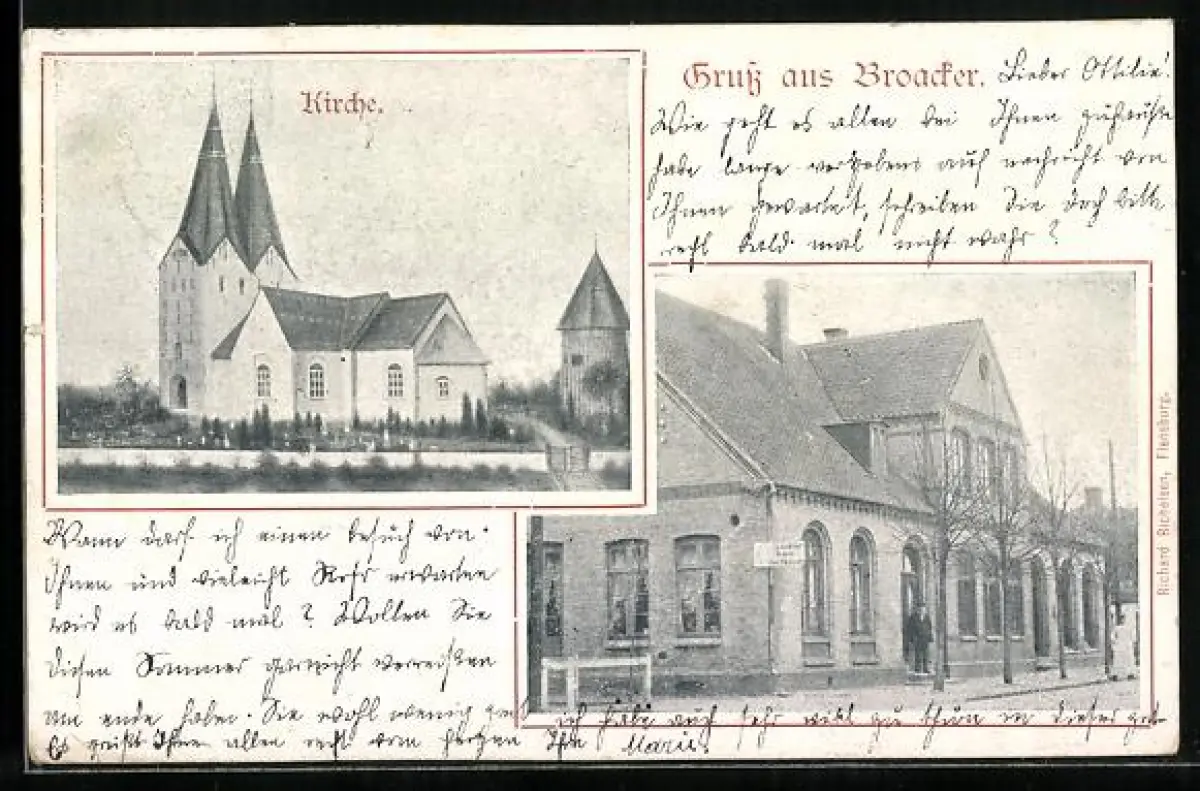 Kirche.
Gruß aus Broacker.
Liebe Ottilie!
Wie geht es allen bei Ihnen zuhause
habe lange vergebens auf nachricht von
Ihnen gewartet, schreiben Sie doch bitte
recht bald mal nicht wahr?
Wann darf ich einen besuch von
Ihnen und vieleicht erwarten
wird es bald mal? Wollen Sie
diesen Sommer garnicht verreisen
am ende haben Sie wohl wenig zeit
ich habe auch sehr viel zu thun in dieser zeit
Es grüßt Ihnen allen recht vom herzen Ihre Marie.
Richard Richelsen, Flensburg.